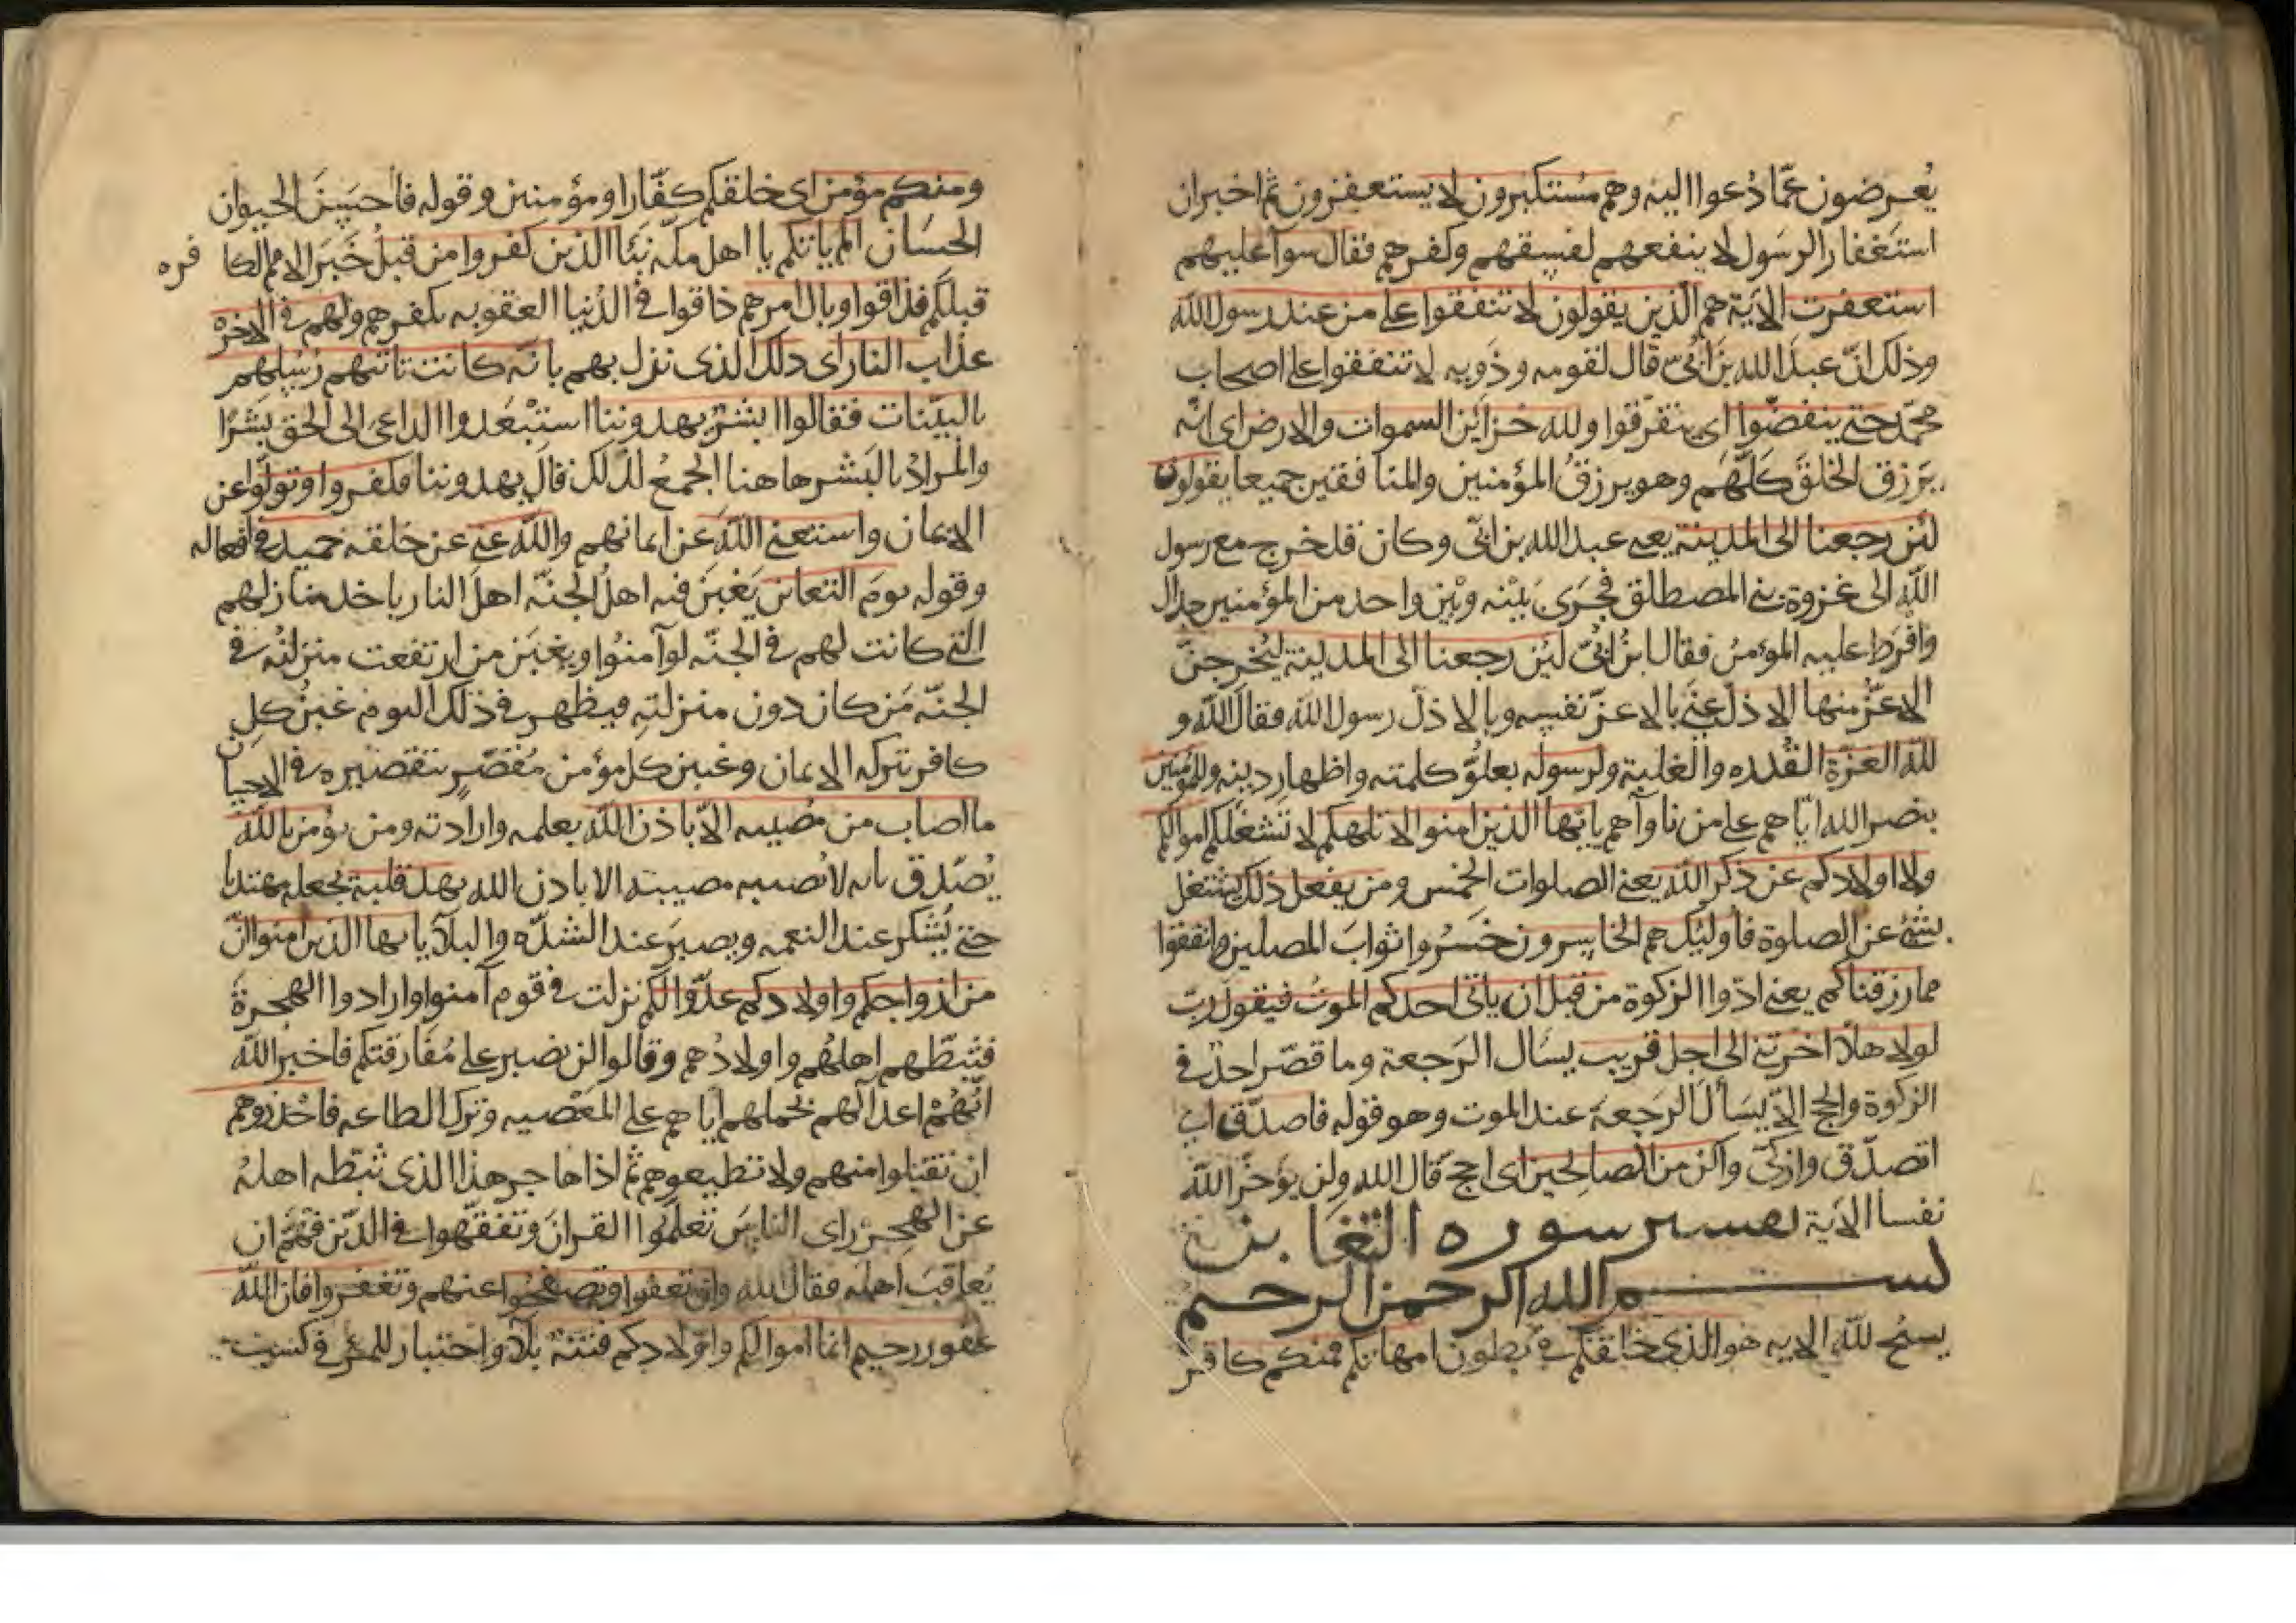 يُعرضون عمّا دُعوا اليه وهم مُستكبرون لا يستغفرون ثم اخبر ان
استغفار الرسول لا ينفعهم لفسقهم وكفرهم فقال سوآ عليهم
استغفرت الاية هم الذين يقولون لا تنفقوا على من عند رسول الله
وذلك انّ عبد الله بن اُبىّ قال لقومه وذويه لا تنفقوا على اصحاب
محمّد حتى ينفضّوا اى يتفرّقوا ولله خزاين السموات والارض اى انّه
يرزق الخلق كلّهم وهو يرزق المؤمنين والمنافقين جميعا يقولون
لئن رجعنا الى المدينة يعنى عبد الله بن ابىّ وكان قد خرج مع رسول
الله الى غزوة بنى المصطلق فجرى بينه وبين واحد من المؤمنين جدال
وافرط عليه المؤمن فقال ابن اُبىّ لئن رجعنا الى المدينة ليُخرجنّ
الاعزّ منها الاذلّ عنى بالاعزّ نفسه وبالاذلّ رسول الله فقال الله و
لله العزّة القُدره والغلبة ولرسوله بعلوّ كلمته واظهار دينه وللمؤمنين
بنصر الله ايّاهم على من ناوآهم يايها الذين امنوا لا تلهكم لا تشغلكم اموالكم
ولا اولادكم عن ذكر الله يعنى الصلوات الخمس ومن يفعل ذلك يشتغل
بشئ عن الصلوة فأولئك هم الخاسرون خسروا ثواب المصلين وانفقوا
مما رزقناكم يعنى ادّوا الزكوة من قبل ان ياتى احدكم الموت فيقول ربّ
لولا هلاّ اخرتنى الى اجل قريب يسأل الرجعة وما قصّر احدٌ فى
الزكوة والحج الاّ يسأل الرجعة عند الموت وهو قوله فاصدّق اى
اتصدّق وازكّى واكن من الصالحين اى احجّ قال الله ولن يؤخّر الله
نفسا الاية تفسير سوره التغابن
بسم الله الرحمن الرحيم
يسبّح لله الايه هو الذى خلقكم فى بطون امهاتكم فمنكم كافر
ومنكم مؤمن اى خلقكم كفّارا ومؤمنين وقوله فأحسن الحيوان
الحسان الم ياتكم يا اهل مكّه نبَأ الذين كفروا من قبل خَبَر الامم الكافره
قبلكم فذاقوا وبال امرهم ذاقوا فى الدنيا العقوبه بكفرهم ولهم فى الاخرة
عذاب النار اى ذلك الذى نزل بهم بانّه كانت تاتيهم رُسُلهم
بالبيّنات فقالوا ابشرٌ يهدوننا استبْعَدوا الداعى الى الحق بشرًا
والمراد بالبشر هاهنا الجمعُ لذلك قال يهدوننا فكفروا وتولّوا عن
الايمان واستغنى الله عن ايمانهم والله غنى عن خلقه حميد فى افعاله
وقوله يومَ التغابن يَغبَن فيه اهلُ الجنّة اهلَ النار باخذ منازلهم
التى كانت لهم فى الجنّه لو آمنُوا ويغبَن من ارتفعت منزلتُه فى
الجنّه مَن كان دون منزلتِه فيظهر فى ذلك اليوم غبنُ كلِ
كافر بتركه الايمان وغبن كل مؤمن مُقصّرٍ بتقصيره فى الاحيان
ما اصاب من مُصيبه الاّ باذن الله بعلمه وارادته ومن يؤمن بالله
يُصَدّق بانه لا تُصيبه مصيبته الا باذن الله يهد قلبه يجعله مهتديا
حتى يَشكر عند النعمه ويصبرَ عند الشدّه والبلآ يايها الذين امنوا انّ
من ازواجكم واولادكم عدّوا لكم نزلت فى قوم آمنوا وارادوا الهجرةَ
فثبّطهم اهلُهُم واولادُهم وقالوا لن نصبر على مُفارقتكم فاخبر الله
انّهُمْ اعدآ لهم بحملهم ايّاهم على المَعْصيه وترك الطاعه فاحْذروهم
ان تقبلوا منهم ولا تطيعوهم ثم اذا هاجر هذا الذى ثبّطه اهلهُ
عن الهجرة راى الناس تعلّمُوا القرانَ وتفقّهوا فى الدّين فهَمّ ان
يُعاقبَ اهله فقال الله وان تعفوا وتصفحُوا عنهم وتغفروا فان الله
غفور رحيم انما اموالكم واولادكم فتنة بلآ واختبار للمرء فى كسب